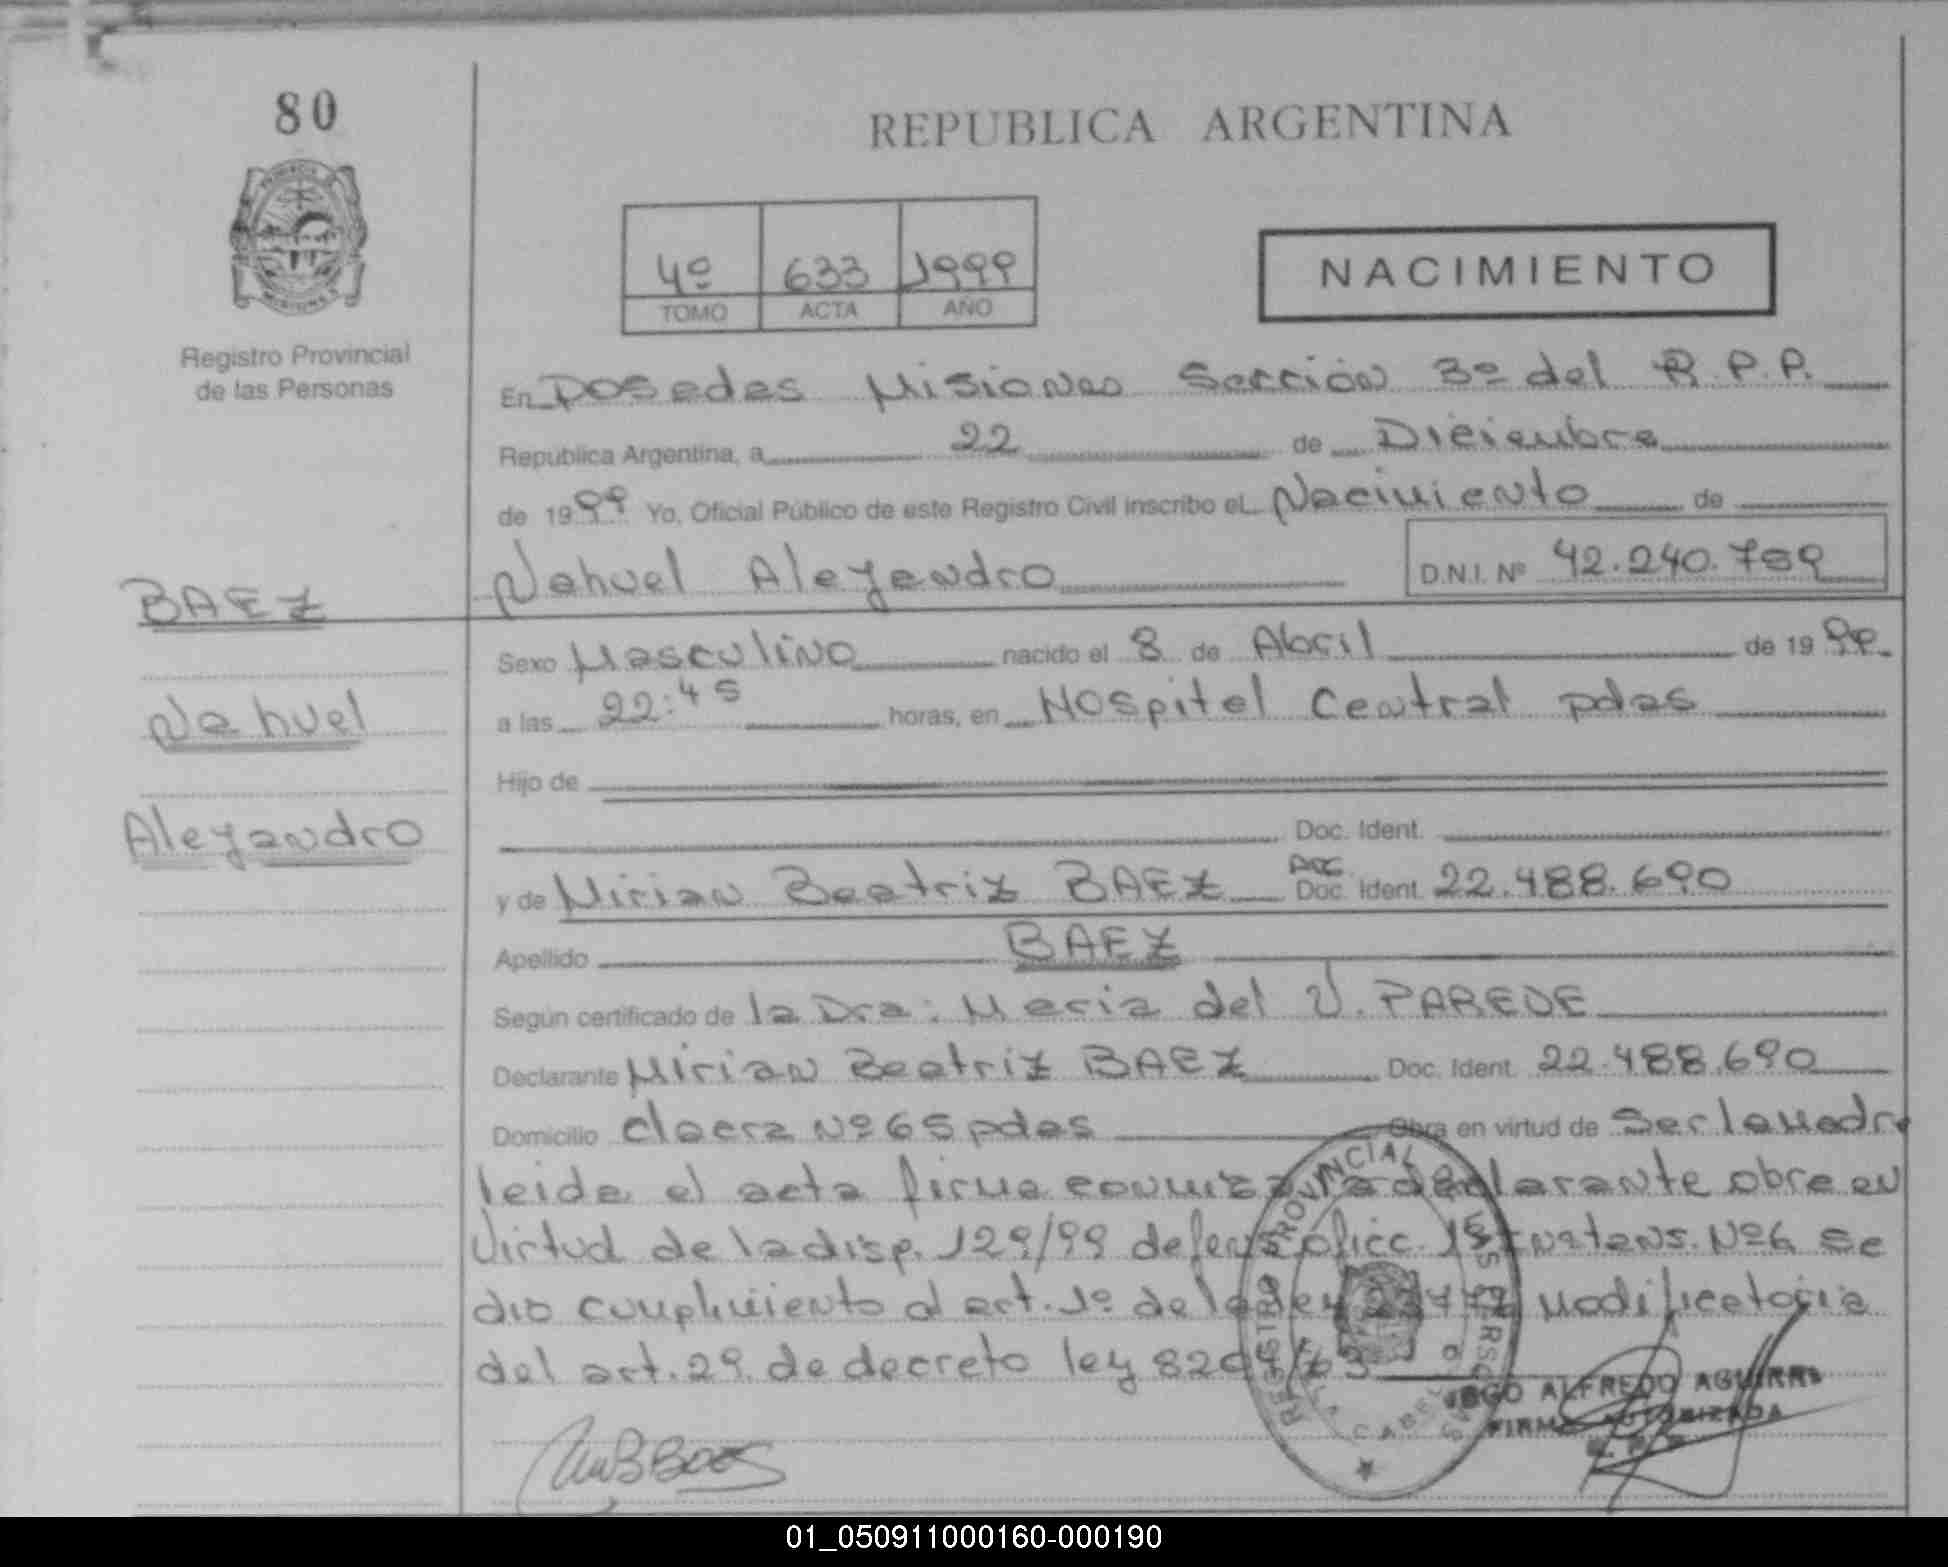 80
REPUBLICA ARGENTINA
4º 633 1999
TOMO ACTA AÑO
NACIMIENTO
Registro Provincial
de las Personas
En Posadas Misiones Sección 3º del R.P.P.
Republica Argentina, a 22 de Diciembre
de 1999 Yo, Oficial Público de este Registro Civil inscribo el Nacimiento de
Nahuel Aleyandro D.N.I. Nº 42.240.789
BAEZ
Sexo Masculino nacido el 8 de Abril de 1999
Nahuel
a las 22:45 horas, en Hospital Central pdas
Hijo de
Aleyandro
Doc. Ident.
y de Mirian Beatriz BAEZ Doc. Ident. 22.488.690
Apellido BAEZ
Según certificado de la Dra: Maria del V. PAREDE
Declarante Mirian Beatriz BAEZ Doc. Ident. 22.488.690
Domicilio chacra Nº 65 pdas Obra en virtud de Ser la Madre
leida el acta firma conmigo la declarante obra en
Virtud de la disp. 129/99 Nº6 se
dio cumplimiento al art. 1º de la ley modificatoria
del art. 29. de decreto ley 8204/63
REGISTRO PROVINCIAL DE LAS PERSONAS
VILLA CABELLO
ALFREDO AGUIRRE
FIRMA AUTORIZADA
01_050911000160-000190